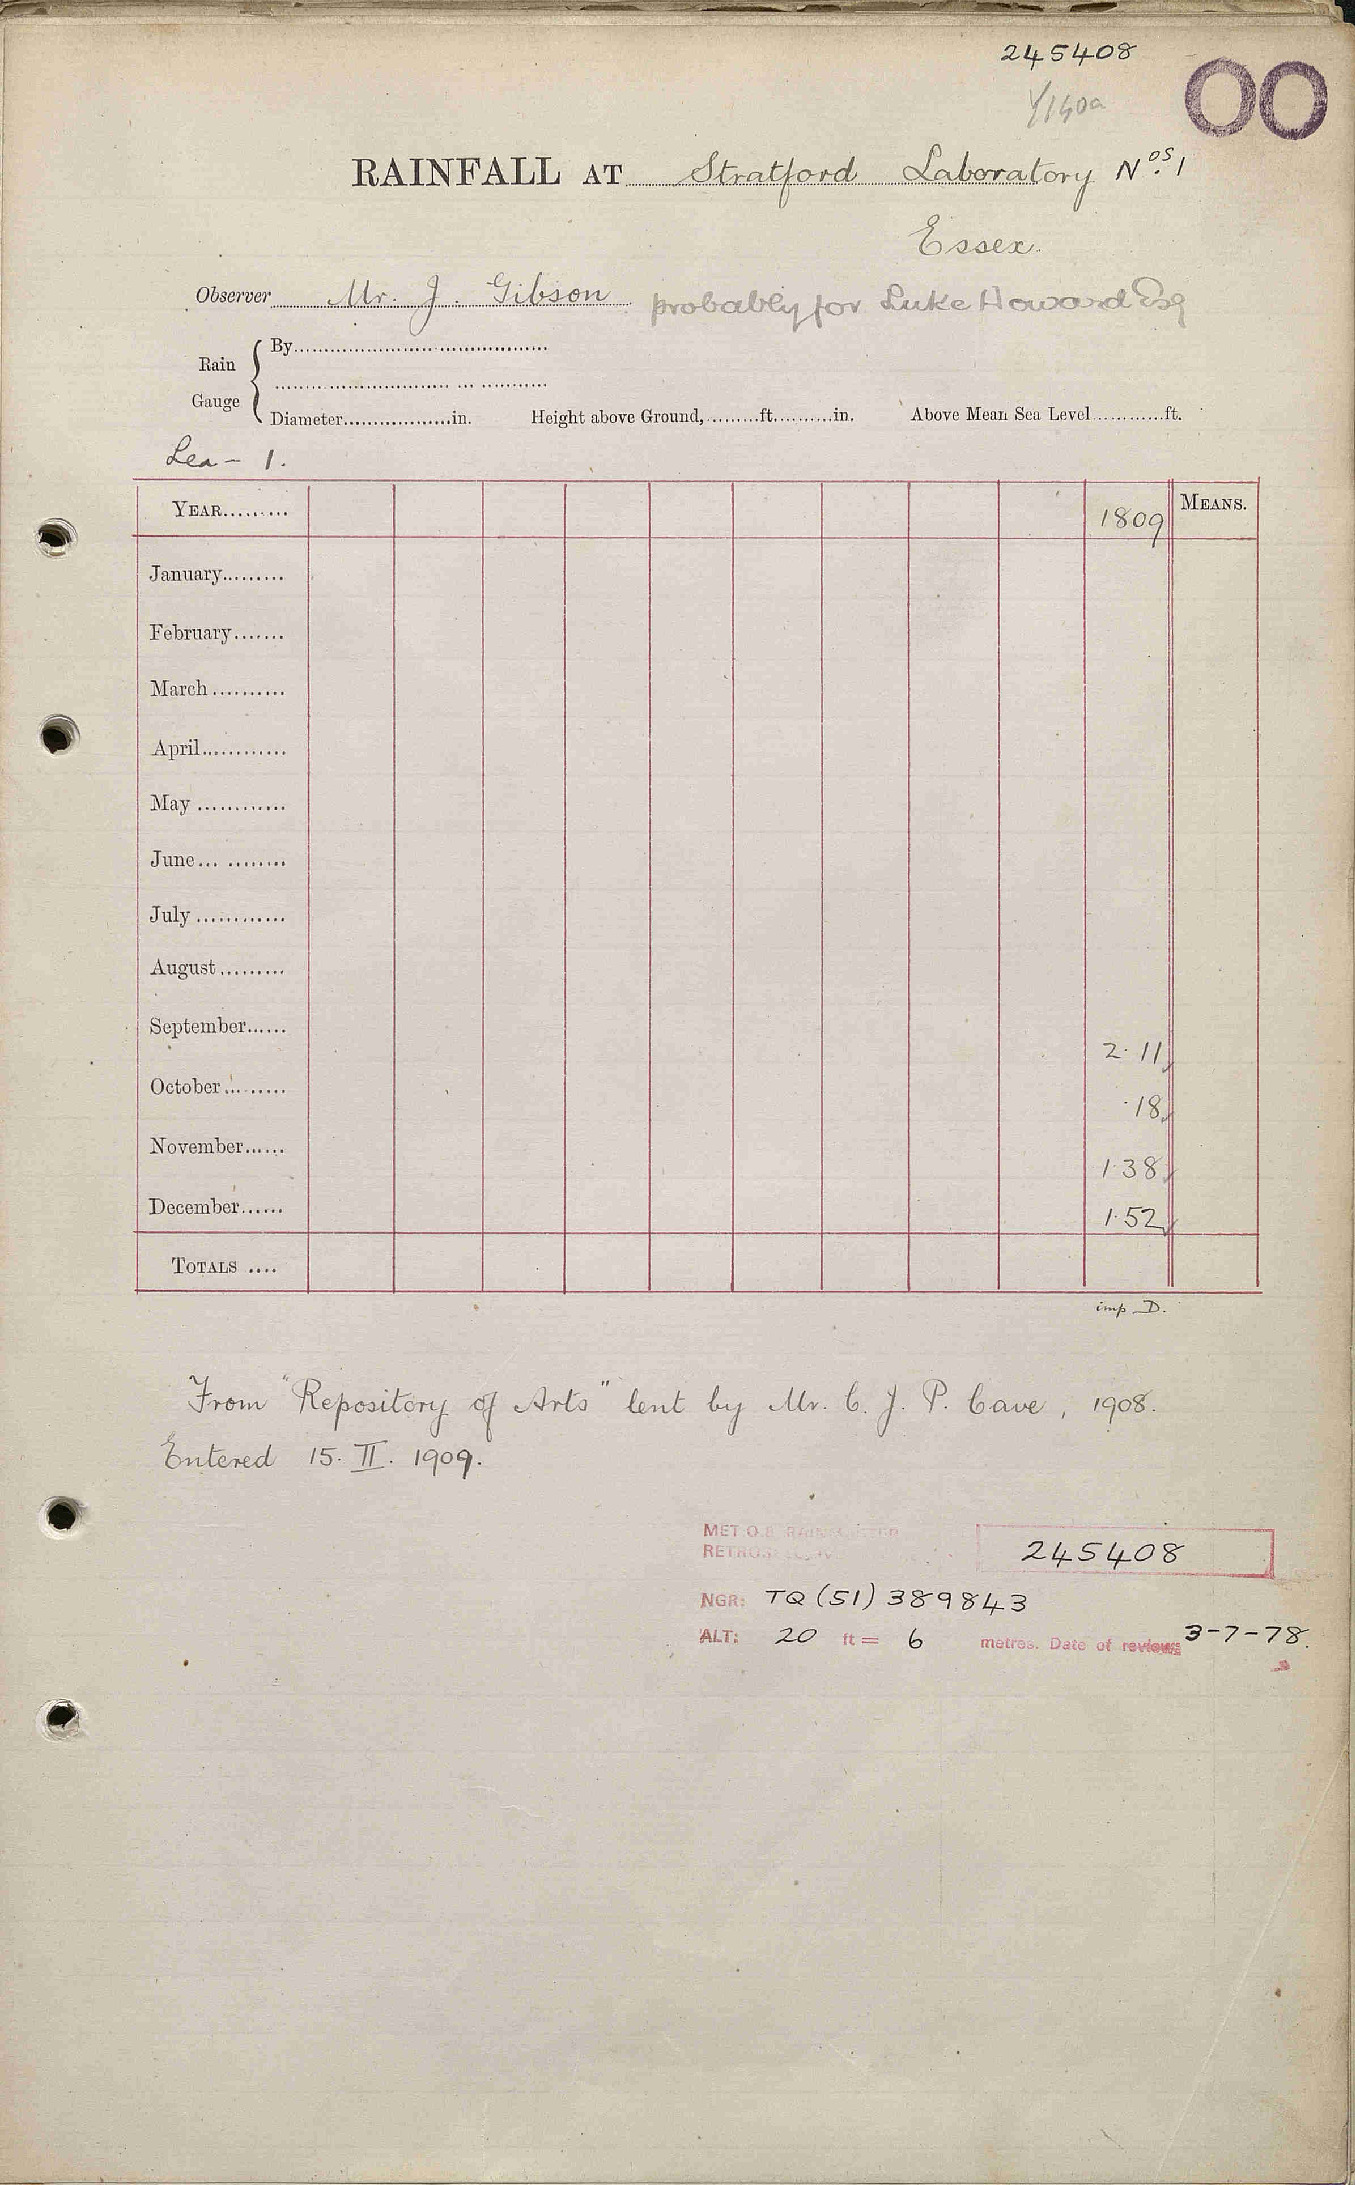 245408
OO
RAINFALL AT Stratford Laboratory Nos. 1
Essex.
Observer Mr. J. Gibson probably for Luke Howard Esq
Rain Gauge { By
Diameter in. Height above Ground, ft. in. Above Mean Sea Level ft.
Lea - 1.
YEAR 1809 MEANS.
January
February
March
April
May
June
July
August
September 2.11
October .18
November 1.38
December 1.52
TOTALS
imp D.
From "Repository of Arts" lent by Mr. C. J. P. Cave, 1908.
Entered 15. II. 1909.
MET O.8
245408
NGR: TQ (51) 389843
ALT: 20 ft = 6 metres. Date of review 3-7-78.